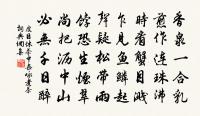 香泉一合乳
煎作連珠沸
時看蟹目濺
乍見魚鱗起
聲疑松帶雨
餑恐生煙翠
尚把瀝中山
必無千日醉
皮日休茶中雜詠煮茶
詞典網集